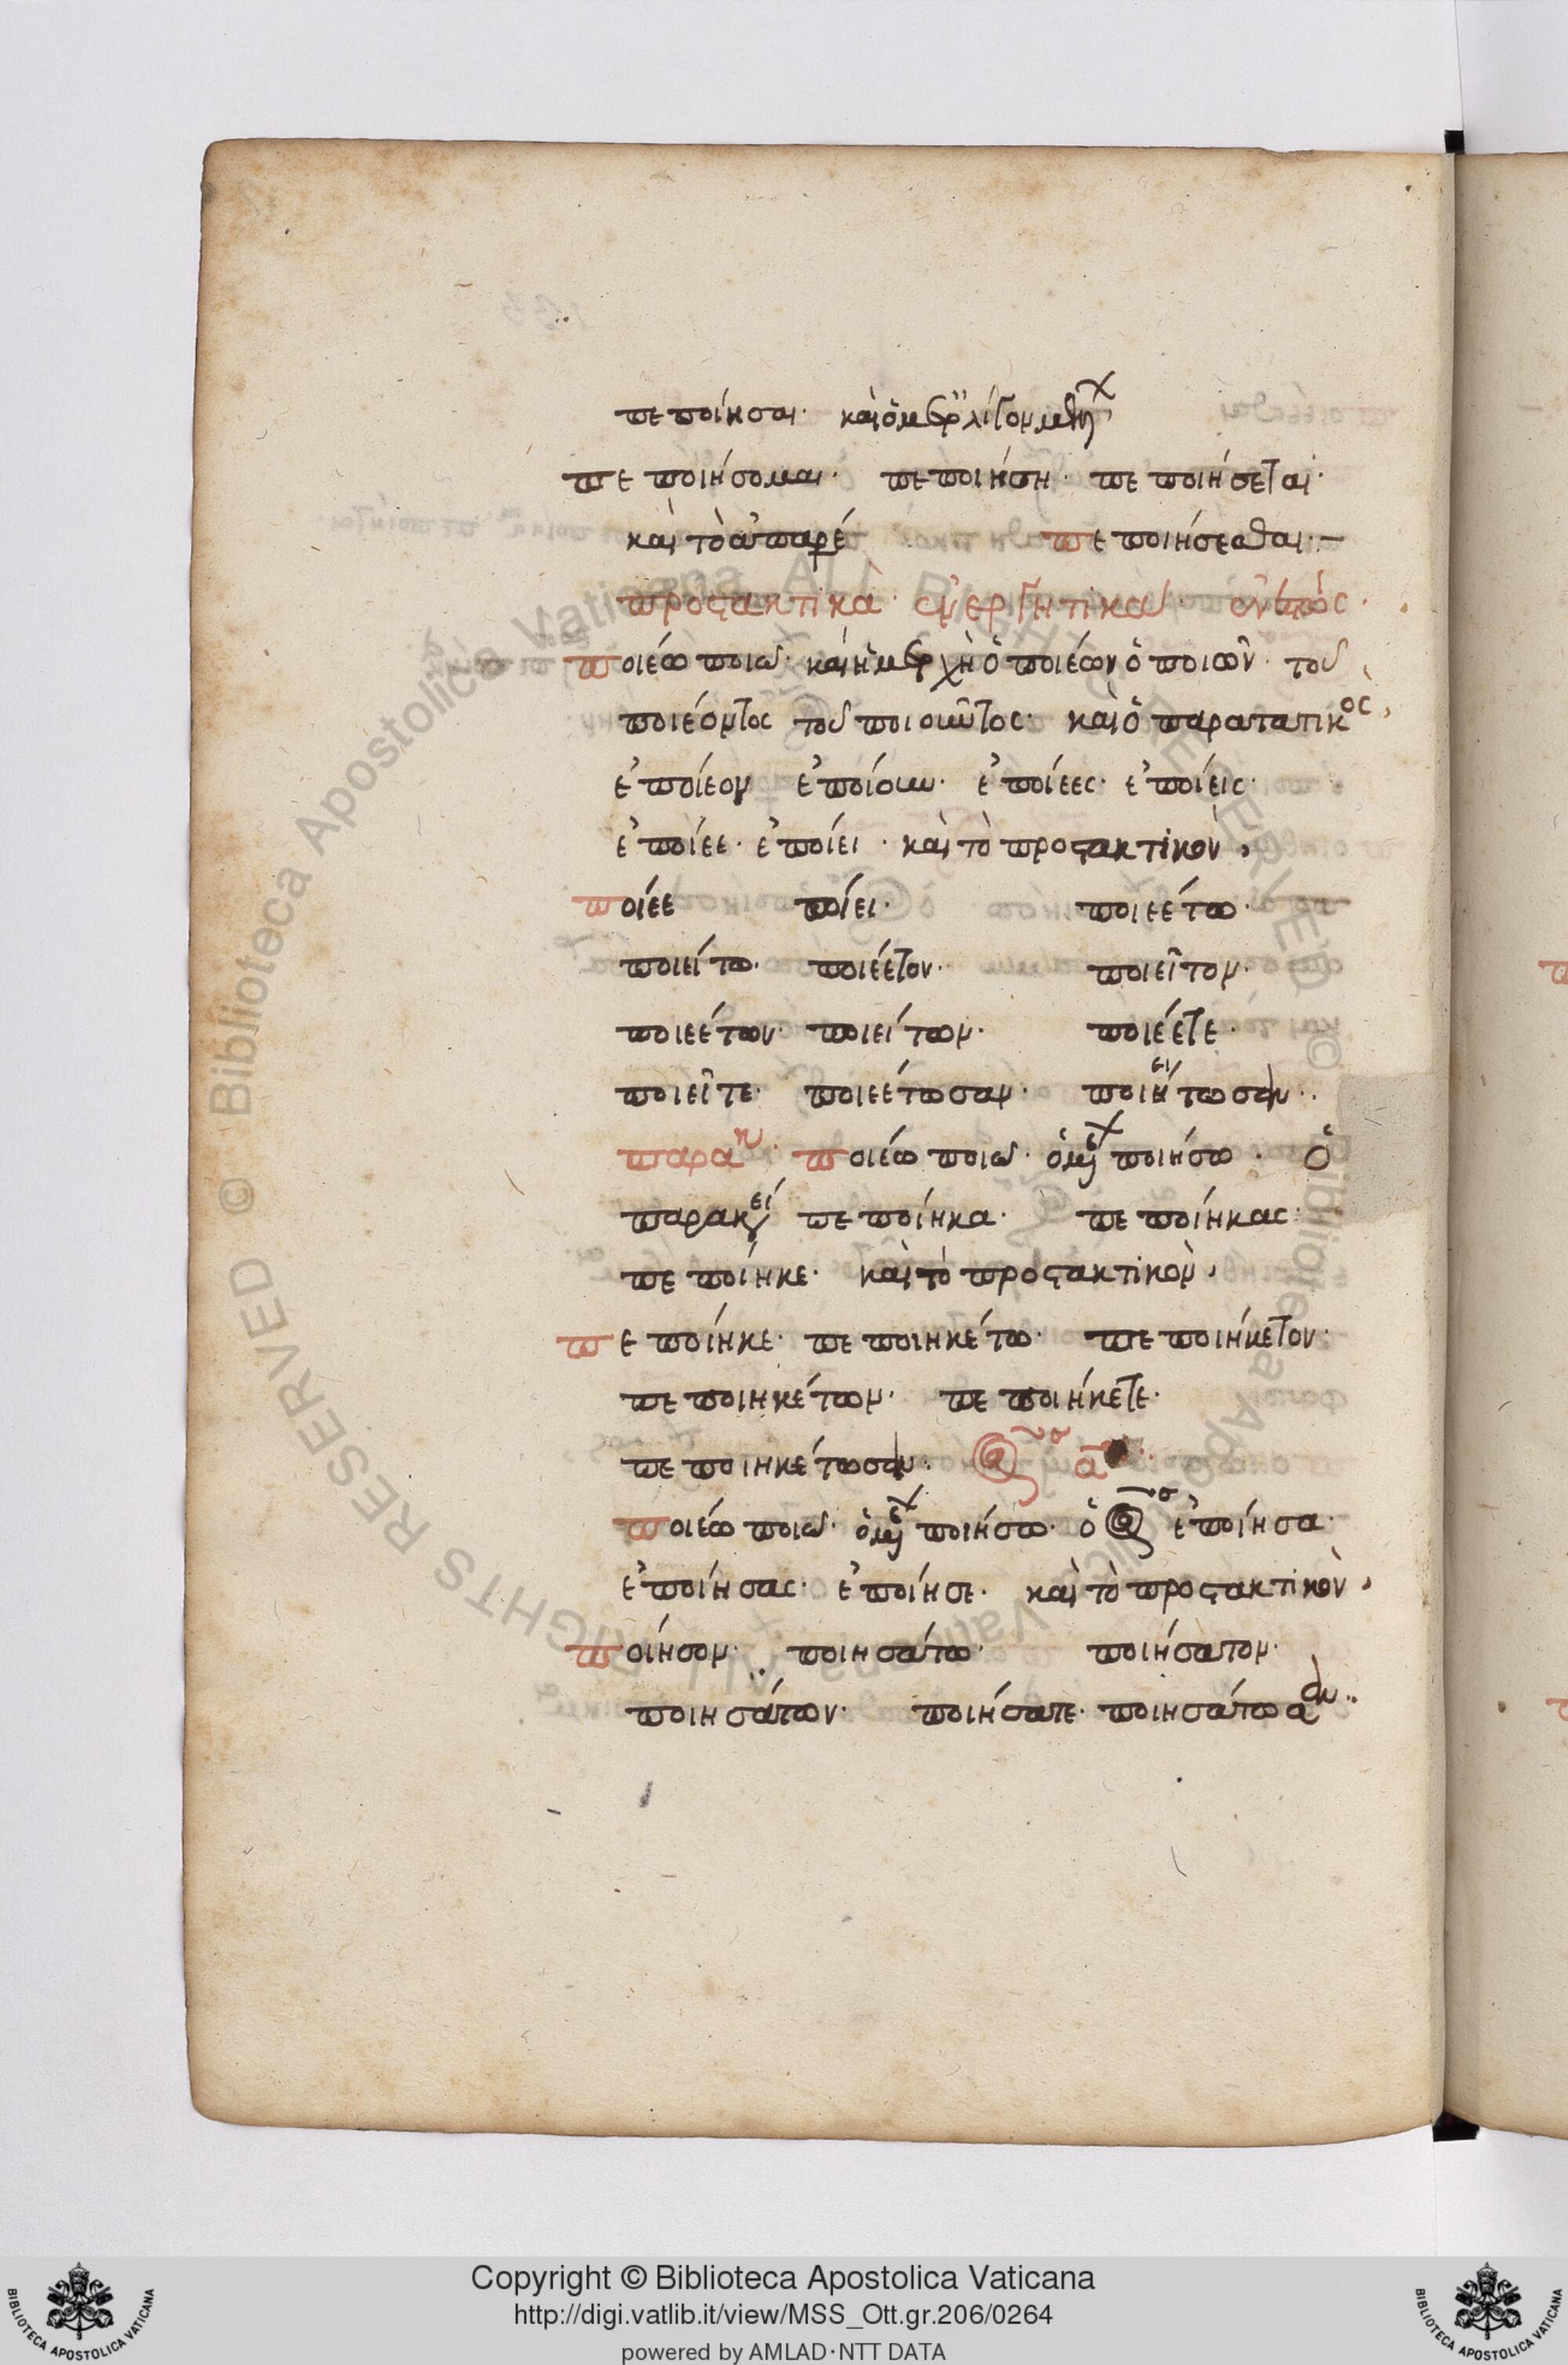 πεποίησαι. καὶ ὁ μετ' ὀλίγον μέλλων
πεποιήσομαι. πεποιήση. πεποιήσεται.
καὶ τὸ ἀπαρέ πεποιήσεσθαι.
προστακτικὰ ἐνεργητικὰ. ἐνεστῶτος.
ποιέω ποιῶ. καὶ ἡ μετοχὴ ὁ ποιέων ὁ ποιῶν. τοῦ
ποιέοντος τοῦ ποιοῦντος. καὶ ὁ παρατατικὸς,
ἐποίεον ἐποίουν. ἐποίεες. ἐποίεις.
ἐποίεε. ἐποίει. καὶ τὸ προστακτικὸν,
ποίεε ποίει. ποιεέτω.
ποιείτω. ποιέετον. ποιεῖτον.
ποιεέτων. ποιείτων. ποιέετε.
ποιεῖτε. ποιεέτωσαν. ποιήείτωσαν.
παρακ. ποιέω ποιῶ. ὁ μέλ ποιήσω. ὁ
παρακεί πεποίηκα. πεποίηκας.
πεποίηκε. καὶ τὸ προστακτικὸν,
πεποίηκε. πεποιηκέτω. πεποιήκετον.
πεποιηκέτων. πεποιήκετε.
πεποιηκέτωσαν. ἀορίστου α
ποιέω ποιῶ. ὁ μέλ ποιήσω. ὁ ἀόριστος ἐποίησα.
ἐποίησας. ἐποίησε. καὶ τὸ προστακτικὸν,
ποίησον. ποιησάτω. ποιήσατον.
ποιησάτων. ποιήσατε. ποιησάτωσαν.
Copyright © Biblioteca Apostolica Vaticana
http://digi.vatlib.it/view/MSS_Ott.gr.206/0264
powered by AMLAD·NTT DATA